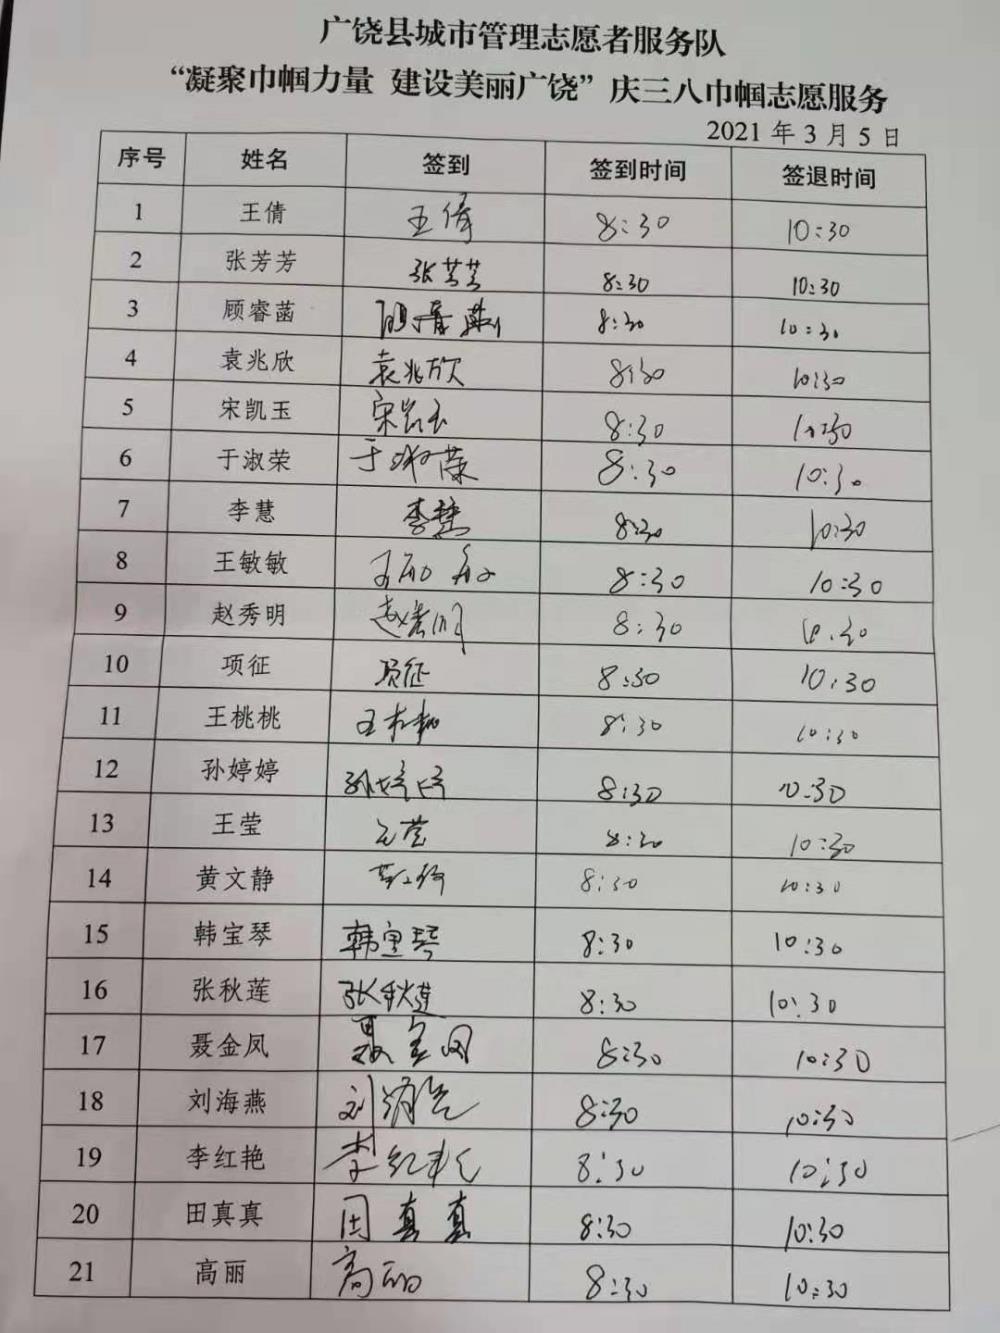 广饶县城市管理志愿者服务队
“凝聚巾帼力量 建设美丽广饶”庆三八巾帼志愿服务
2021 年 3 月 5 日
序号 姓名 签到 签到时间 签退时间
1 王倩 王倩 8:30 10:30
2 张芳芳 张芳芳 8:30 10:30
3 顾睿菡 顾睿菡 8:30 10:30
4 袁兆欣 袁兆欣 8:30 10:30
5 宋凯玉 宋凯玉 8:30 10:30
6 于淑荣 于淑荣 8:30 10:30
7 李慧 李慧 8:30 10:30
8 王敏敏 王敏敏 8:30 10:30
9 赵秀明 赵秀明 8:30 10.30
10 项征 项征 8:30 10:30
11 王桃桃 王桃桃 8:30 10:30
12 孙婷婷 孙婷婷 8:30 10:30
13 王莹 王莹 8:30 10:30
14 黄文静 黄文静 8:30 10:30
15 韩宝琴 韩宝琴 8:30 10:30
16 张秋莲 张秋莲 8:30 10:30
17 聂金凤 聂金凤 8:30 10:30
18 刘海燕 刘海燕 8:30 10:30
19 李红艳 李红艳 8:30 10:30
20 田真真 田真真 8:30 10:30
21 高丽 高丽 8:30 10:30